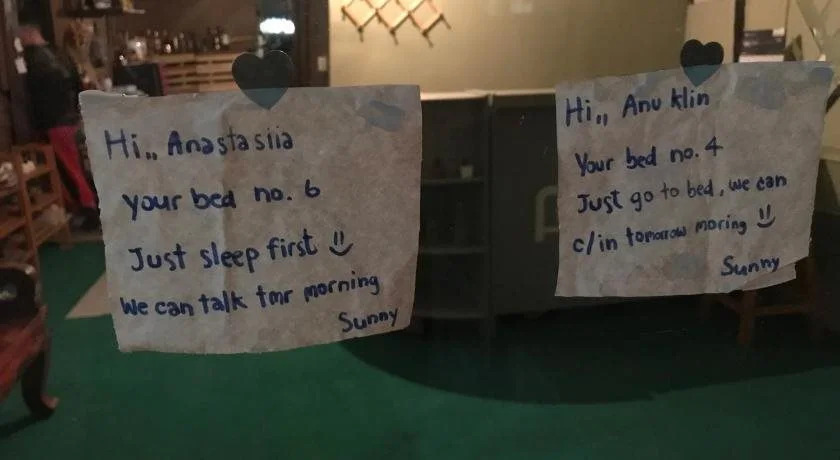 Hi,, Anastasiia
your bed no. 6
Just sleep first
We can talk tmr morning
Sunny
Hi,, Anu Klin
Your bed no. 4
Just go to bed, we can
c/in tomorrow moring
Sunny